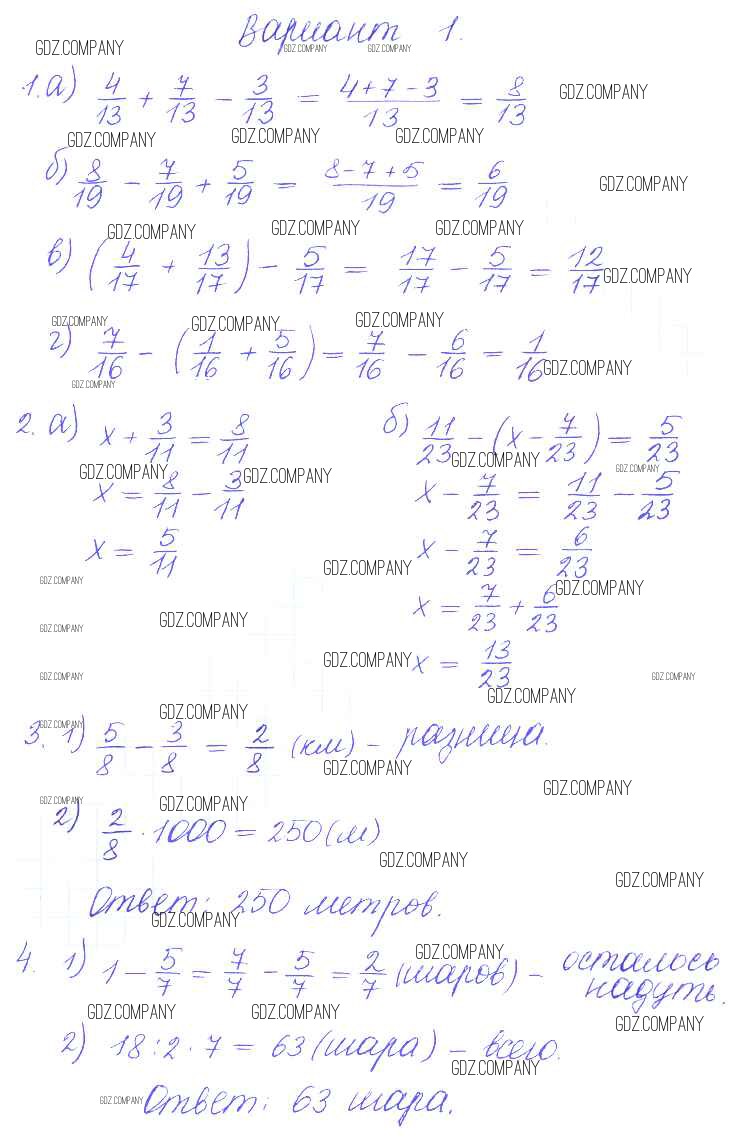 Вариант 1.
1. а) 4/13 + 7/13 - 3/13 = (4+7-3)/13 = 8/13
б) 8/19 - 7/19 + 5/19 = (8-7+5)/19 = 6/19
в) (4/17 + 13/17) - 5/17 = 17/17 - 5/17 = 12/17
г) 7/16 - (1/16 + 5/16) = 7/16 - 6/16 = 1/16
2. а) x + 3/11 = 8/11
x = 8/11 - 3/11
x = 5/11
б) 11/23 - (x - 7/23) = 5/23
x - 7/23 = 11/23 - 5/23
x - 7/23 = 6/23
x = 7/23 + 6/23
x = 13/23
3. 1) 5/8 - 3/8 = 2/8 (км) - разница.
2) 2/8 · 1000 = 250 (м)
Ответ: 250 метров.
4. 1) 1 - 5/7 = 7/7 - 5/7 = 2/7 (шаров) - осталось
надуть.
2) 18 : 2 · 7 = 63 (шара) - всего.
Ответ: 63 шара.
GDZ.COMPANY